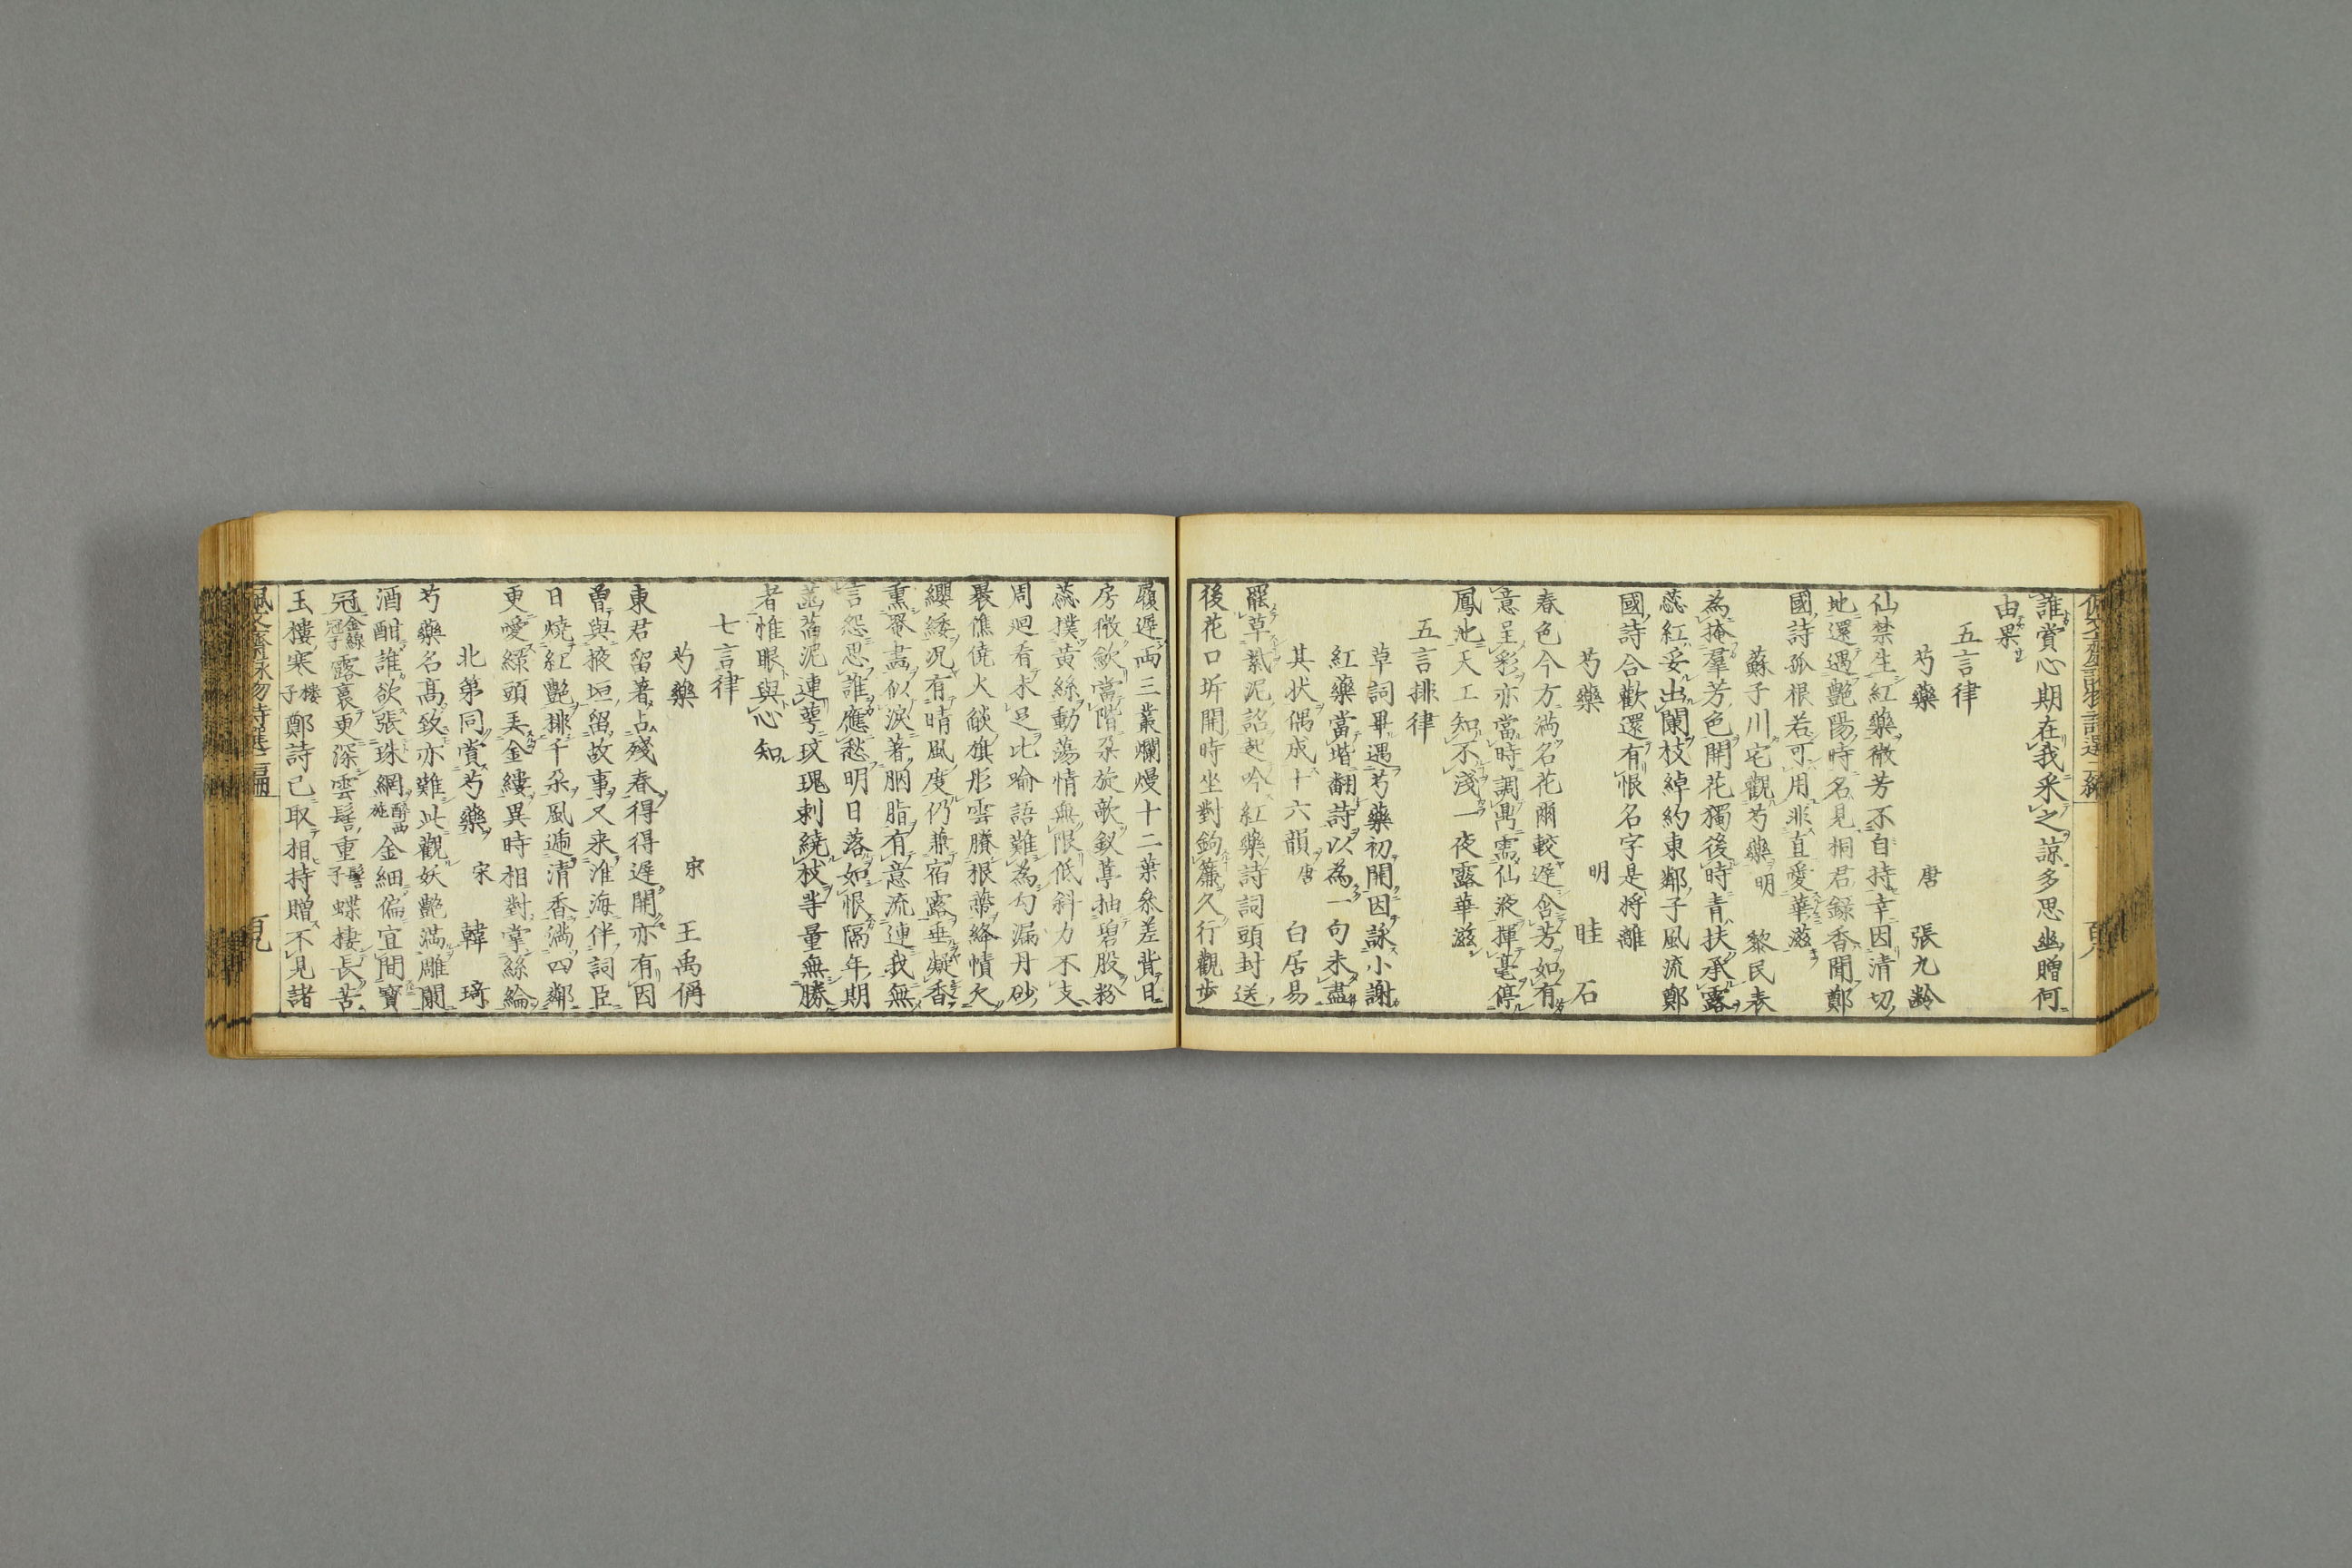 誰賞心期在我采之諒多思幽贈何
由果
五言律
芍藥 唐 張九齡
仙禁生紅藥微芳不自持幸因清切
地還遇艶陽時名見桐君録香聞鄭
國詩孤根若可用非直愛華滋
蘇子川宅觀芍藥 明 黎民表
為掩羣芳色開花獨後時青扶承露
蕊紅妥出闌枝綽約東鄰子風流鄭
國詩合歡還有恨名字是将離
芍藥 明 眭石
春色今方満名花爾較遅含芳如有
意呈彩亦當時調鼎需仙液揮毫停
鳳池天工知不淺一夜露華滋
五言排律
草詞畢遇芍藥初開因詠小謝
紅藥當堦翻詩以為一句未盡
其状偶成十六韻 唐 白居易
罷草紫泥詔起吟紅藥詩詞頭封送
後花口坼開時坐對鉤簾久行觀歩
履遅両三叢爛熳十二葉参差背日
房微歛當階朶旋欹釵葶抽碧股粉
蕊撲黄絲動蕩情無限低斜力不支
周廻看未足比喻語難為勾漏丹砂
裹僬僥火燄旗彤雲賸根蔕絳幘欠
纓緌況有晴風度仍兼宿露垂凝香
薫罨畫似涙著胭脂有意流連我無
言怨思誰應愁明日落如恨隔年期
菡萏泥連萼玫瑰刺繞枝等量無勝
者惟眼與心知
七言律
芍藥 宋 王禹偁
東君留著占殘春得得遅開亦有因
曽與掖垣留故事又来淮海伴詞臣
日燒紅艶排千朶風遞清香満四鄰
更愛緑頭弄金縷異時相對掌絲綸
北第同賞芍藥 宋 韓琦
芍藥名髙致亦難此觀妖艶満雕闌
酒酣誰欲張珠網醉西施金細偏宜間寶
冠金線冠子露裛更深雲髻重髻子蝶棲長苦
玉樓寒樓子鄭詩已取相持贈不見諸
佩文齋詠物詩選二編